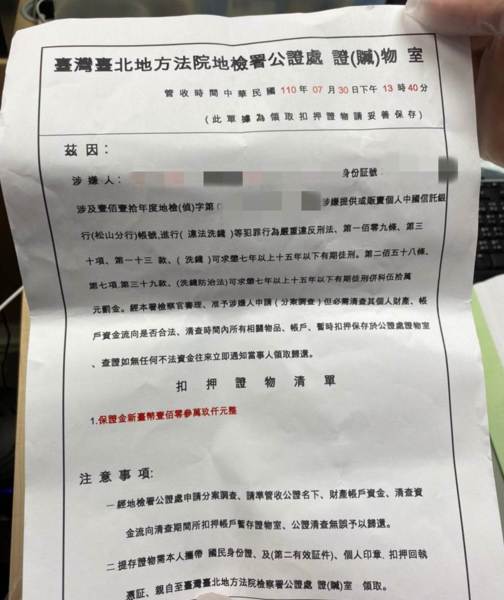 臺灣臺北地方法院地檢署公證處 證(贓)物 室
管收時間中華民國 110年 07月 30日下午 13時 40分
(此單據為領取扣押證物請妥善保存)
茲因：
涉嫌人： 身份証號
涉及壹佰壹拾年度地檢(偵)字第 涉嫌提供或販賣個人中國信託銀
行(松山分行)帳號,進行( 違法洗錢 )等犯罪行為嚴重違反刑法、第一佰零九條、第三
十項、第一十三 款、( 洗錢 )可求懲七年以上十五年以下有期徒刑。第二佰五十八條、
第七項,第三十九款、(洗錢防治法)可求懲七年以上十五年以下有期徒刑併科伍拾萬
元罰金。經本署檢察官審理、准予涉嫌人申請(分案調查)但必需清查其個人財產、帳
戶資金流向是否合法、清查時間內所有相關物品、帳戶、暫時扣押保存於公證處證物室
、查證如無任何不法資金往來立即通知當事人領取歸還。
扣押證物清單
1.保證金新臺幣壹佰零參萬玖仟元整
注意事項:
一 經地檢署公證處申請分案調查、請準管收公證名下、財產帳戶資金、清查資
金流向清查期間所扣押帳戶暫存證物室、公證清查無誤予以歸還。
二 提存證物需本人攜帶 國民身份證、及(第二有效証件)、個人印章、扣押回執
憑証、親自至臺灣臺北地方法院檢察署公證處 證(贓)室 領取。